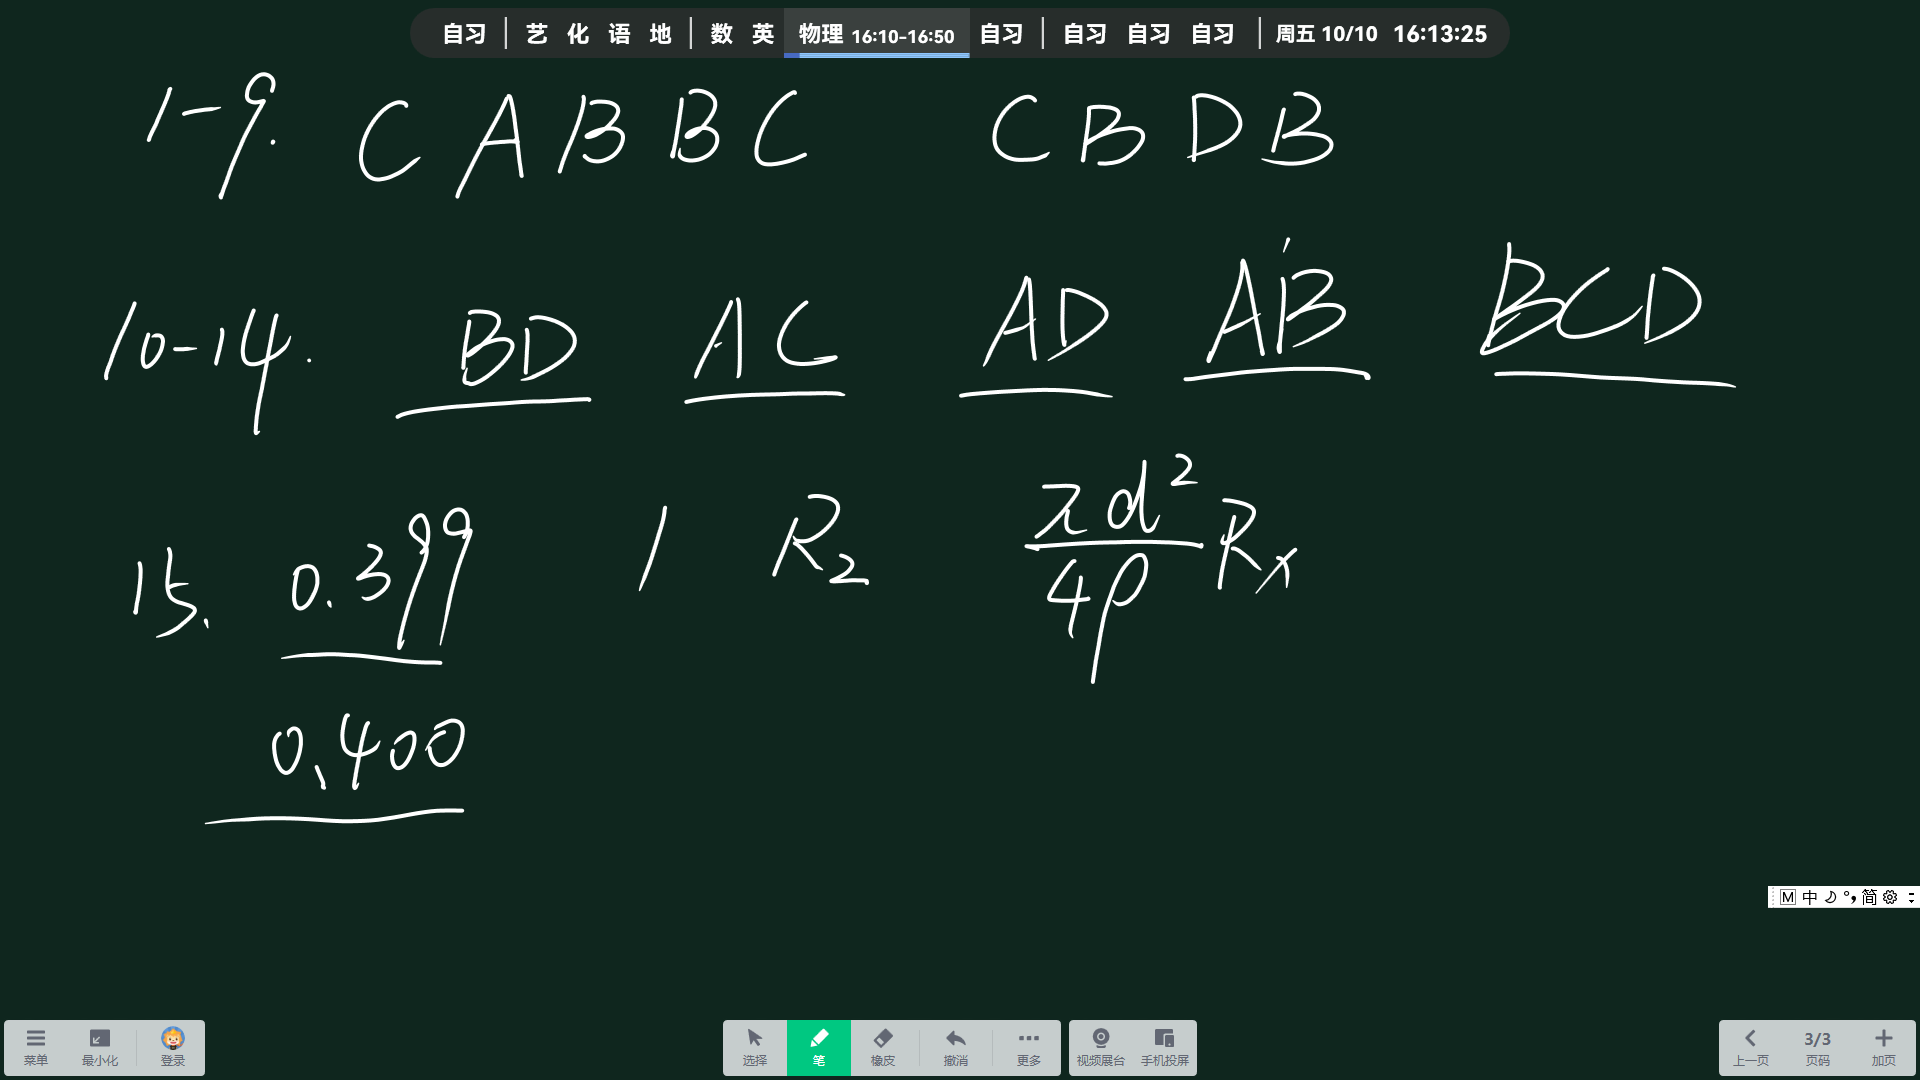 自习 | 艺 化 语 地 | 数 英 物理 16:10-16:50 自习 | 自习 自习 自习 | 周五 10/10 16:13:25
1-9. C A B B C C B D B
10-14. BD AC AD AB BCD
15. 0.399 1 R₂ πd²/4ρ Rₓ
0.400
M 中 简
菜单 最小化 登录 选择 笔 橡皮 撤消 更多 视频展台 手机投屏 上一页 3/3 页码 加页